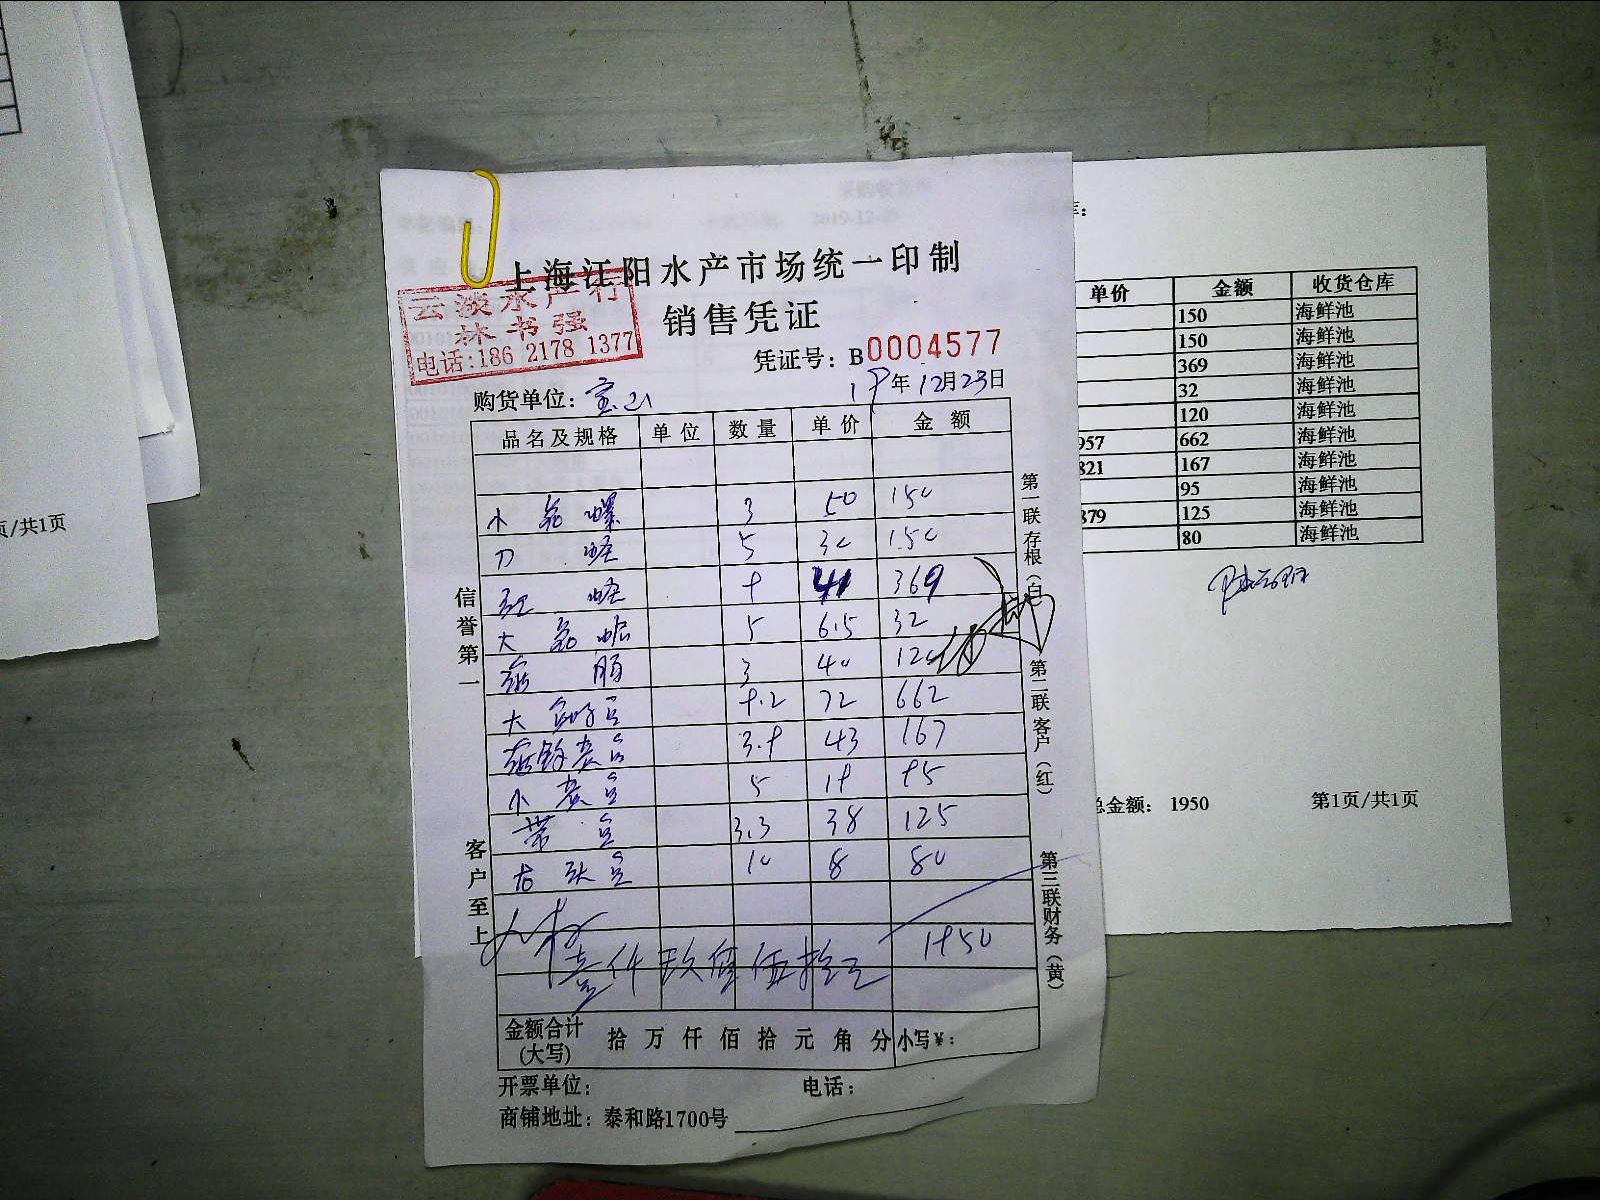 页/共1页
上海江阳水产市场统一印制
销售凭证
云淡水产行
林书强
电话:186 2178 1377
凭证号: B0004577
购货单位: 宝山
19年12月23日
品名及规格 单位 数量 单价 金额
小花螺 3 50 150
刀蛏 5 30 150
红蛏 9 41 369
大 5 6.5 32
3 40 120
大 9.2 72 662
3.9 43 167
小黄鱼 5 19 95
带鱼 3.3 38 125
龙头鱼 10 8 80
壹仟玖佰伍拾元 1950
金额合计
(大写)
拾万仟佰拾元角分 小写¥:
开票单位: 电话:
商铺地址: 泰和路1700号
信誉第一
客户至上
第一联存根(白)
第二联客户(红)
第三联财务(黄)
2019-12-2
单价 金额 收货仓库
150 海鲜池
150 海鲜池
369 海鲜池
32 海鲜池
120 海鲜池
957 662 海鲜池
821 167 海鲜池
95 海鲜池
879 125 海鲜池
80 海鲜池
总金额: 1950 第1页/共1页